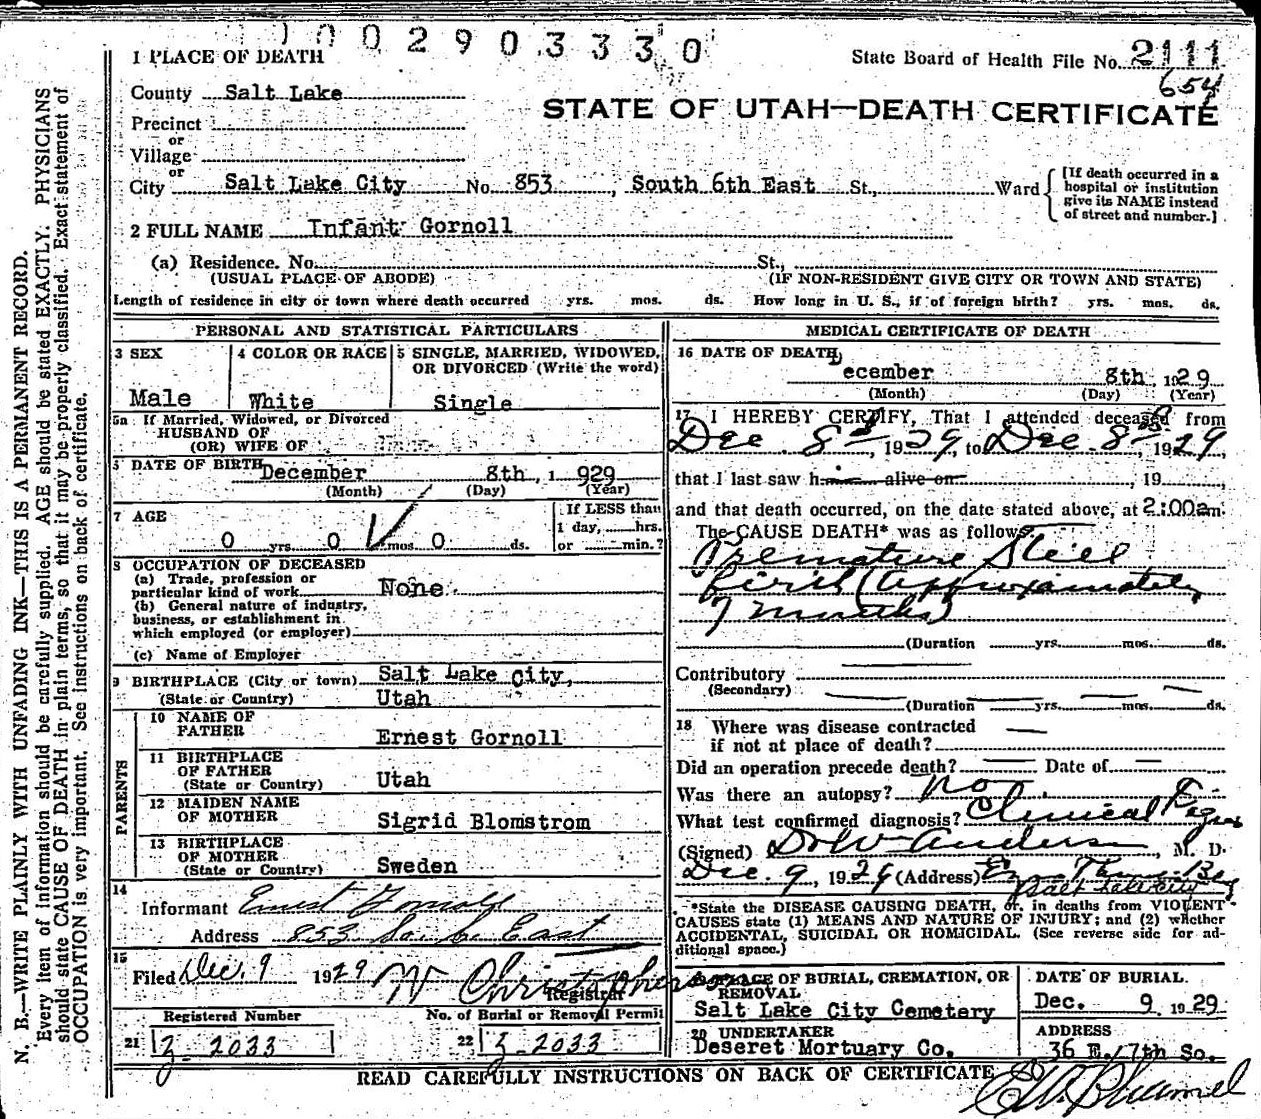 1002903330
1 PLACE OF DEATH
State Board of Health File No. 2111
654
County Salt Lake
STATE OF UTAH—DEATH CERTIFICATE
Precinct
or
Village
or
City Salt Lake City No. 853, South 6th East St., Ward
[If death occurred in a hospital or institution give its NAME instead of street and number.]
2 FULL NAME Infant Gornoll
(a) Residence. No. St.,
(USUAL PLACE OF ABODE) (IF NON-RESIDENT GIVE CITY OR TOWN AND STATE)
Length of residence in city or town where death occurred yrs. mos. ds. How long in U. S., if of foreign birth? yrs. mos. ds.
PERSONAL AND STATISTICAL PARTICULARS
3 SEX 4 COLOR OR RACE 5 SINGLE, MARRIED, WIDOWED,
OR DIVORCED (Write the word)
Male White Single
5a If Married, Widowed, or Divorced
HUSBAND OF
(OR) WIFE OF
6 DATE OF BIRTH December 8th, 1 929
(Month) (Day) (Year)
7 AGE If LESS than
1 day, hrs.
0 yrs. 0 mos. 0 ds. or min.?
8 OCCUPATION OF DECEASED
(a) Trade, profession or
particular kind of work None
(b) General nature of industry,
business, or establishment in
which employed (or employer)
(c) Name of Employer
9 BIRTHPLACE (City or town) Salt Lake City,
(State or Country) Utah
PARENTS
10 NAME OF
FATHER Ernest Gornoll
11 BIRTHPLACE
OF FATHER
(State or Country) Utah
12 MAIDEN NAME
OF MOTHER Sigrid Blomstrom
13 BIRTHPLACE
OF MOTHER
(State or Country) Sweden
14
Informant Ernest Gornoll
Address 853 So. 6 East
15
Filed Dec. 9 1929 W Christopherson
Registrar
Registered Number No. of Burial or Removal Permit
21 2033 22 2033
MEDICAL CERTIFICATE OF DEATH
16 DATE OF DEATH
December 8th, 1929
(Month) (Day) (Year)
17 I HEREBY CERTIFY, That I attended deceased from
Dec. 8, 1929, to Dec. 8, 1929,
that I last saw h alive on , 19 ,
and that death occurred, on the date stated above, at 2:00am.
The CAUSE DEATH* was as follows:
Premature Still
birth (approximately
7 months)
(Duration yrs. mos. ds.
Contributory
(Secondary)
(Duration yrs. mos. ds.
18 Where was disease contracted
if not at place of death?
Did an operation precede death? Date of
Was there an autopsy? no
What test confirmed diagnosis? Clinical Signs
(Signed) Anderson, M. D.
Dec. 9, 1929 (Address)
Salt Lake City
*State the DISEASE CAUSING DEATH, or, in deaths from VIOLENT
CAUSES state (1) MEANS AND NATURE OF INJURY; and (2) whether
ACCIDENTAL, SUICIDAL OR HOMICIDAL. (See reverse side for ad-
ditional space.)
PLACE OF BURIAL, CREMATION, OR
REMOVAL
DATE OF BURIAL
Salt Lake City Cemetery Dec. 9 1929
20 UNDERTAKER ADDRESS
Deseret Mortuary Co. 36 E. 7th So.
READ CAREFULLY INSTRUCTIONS ON BACK OF CERTIFICATE
N. B.—WRITE PLAINLY WITH UNFADING INK—THIS IS A PERMANENT RECORD.
Every item of information should be carefully supplied. AGE should be stated EXACTLY. PHYSICIANS
should state CAUSE OF DEATH in plain terms, so that it may be properly classified. Exact statement of
OCCUPATION is very important. See instructions on back of certificate.